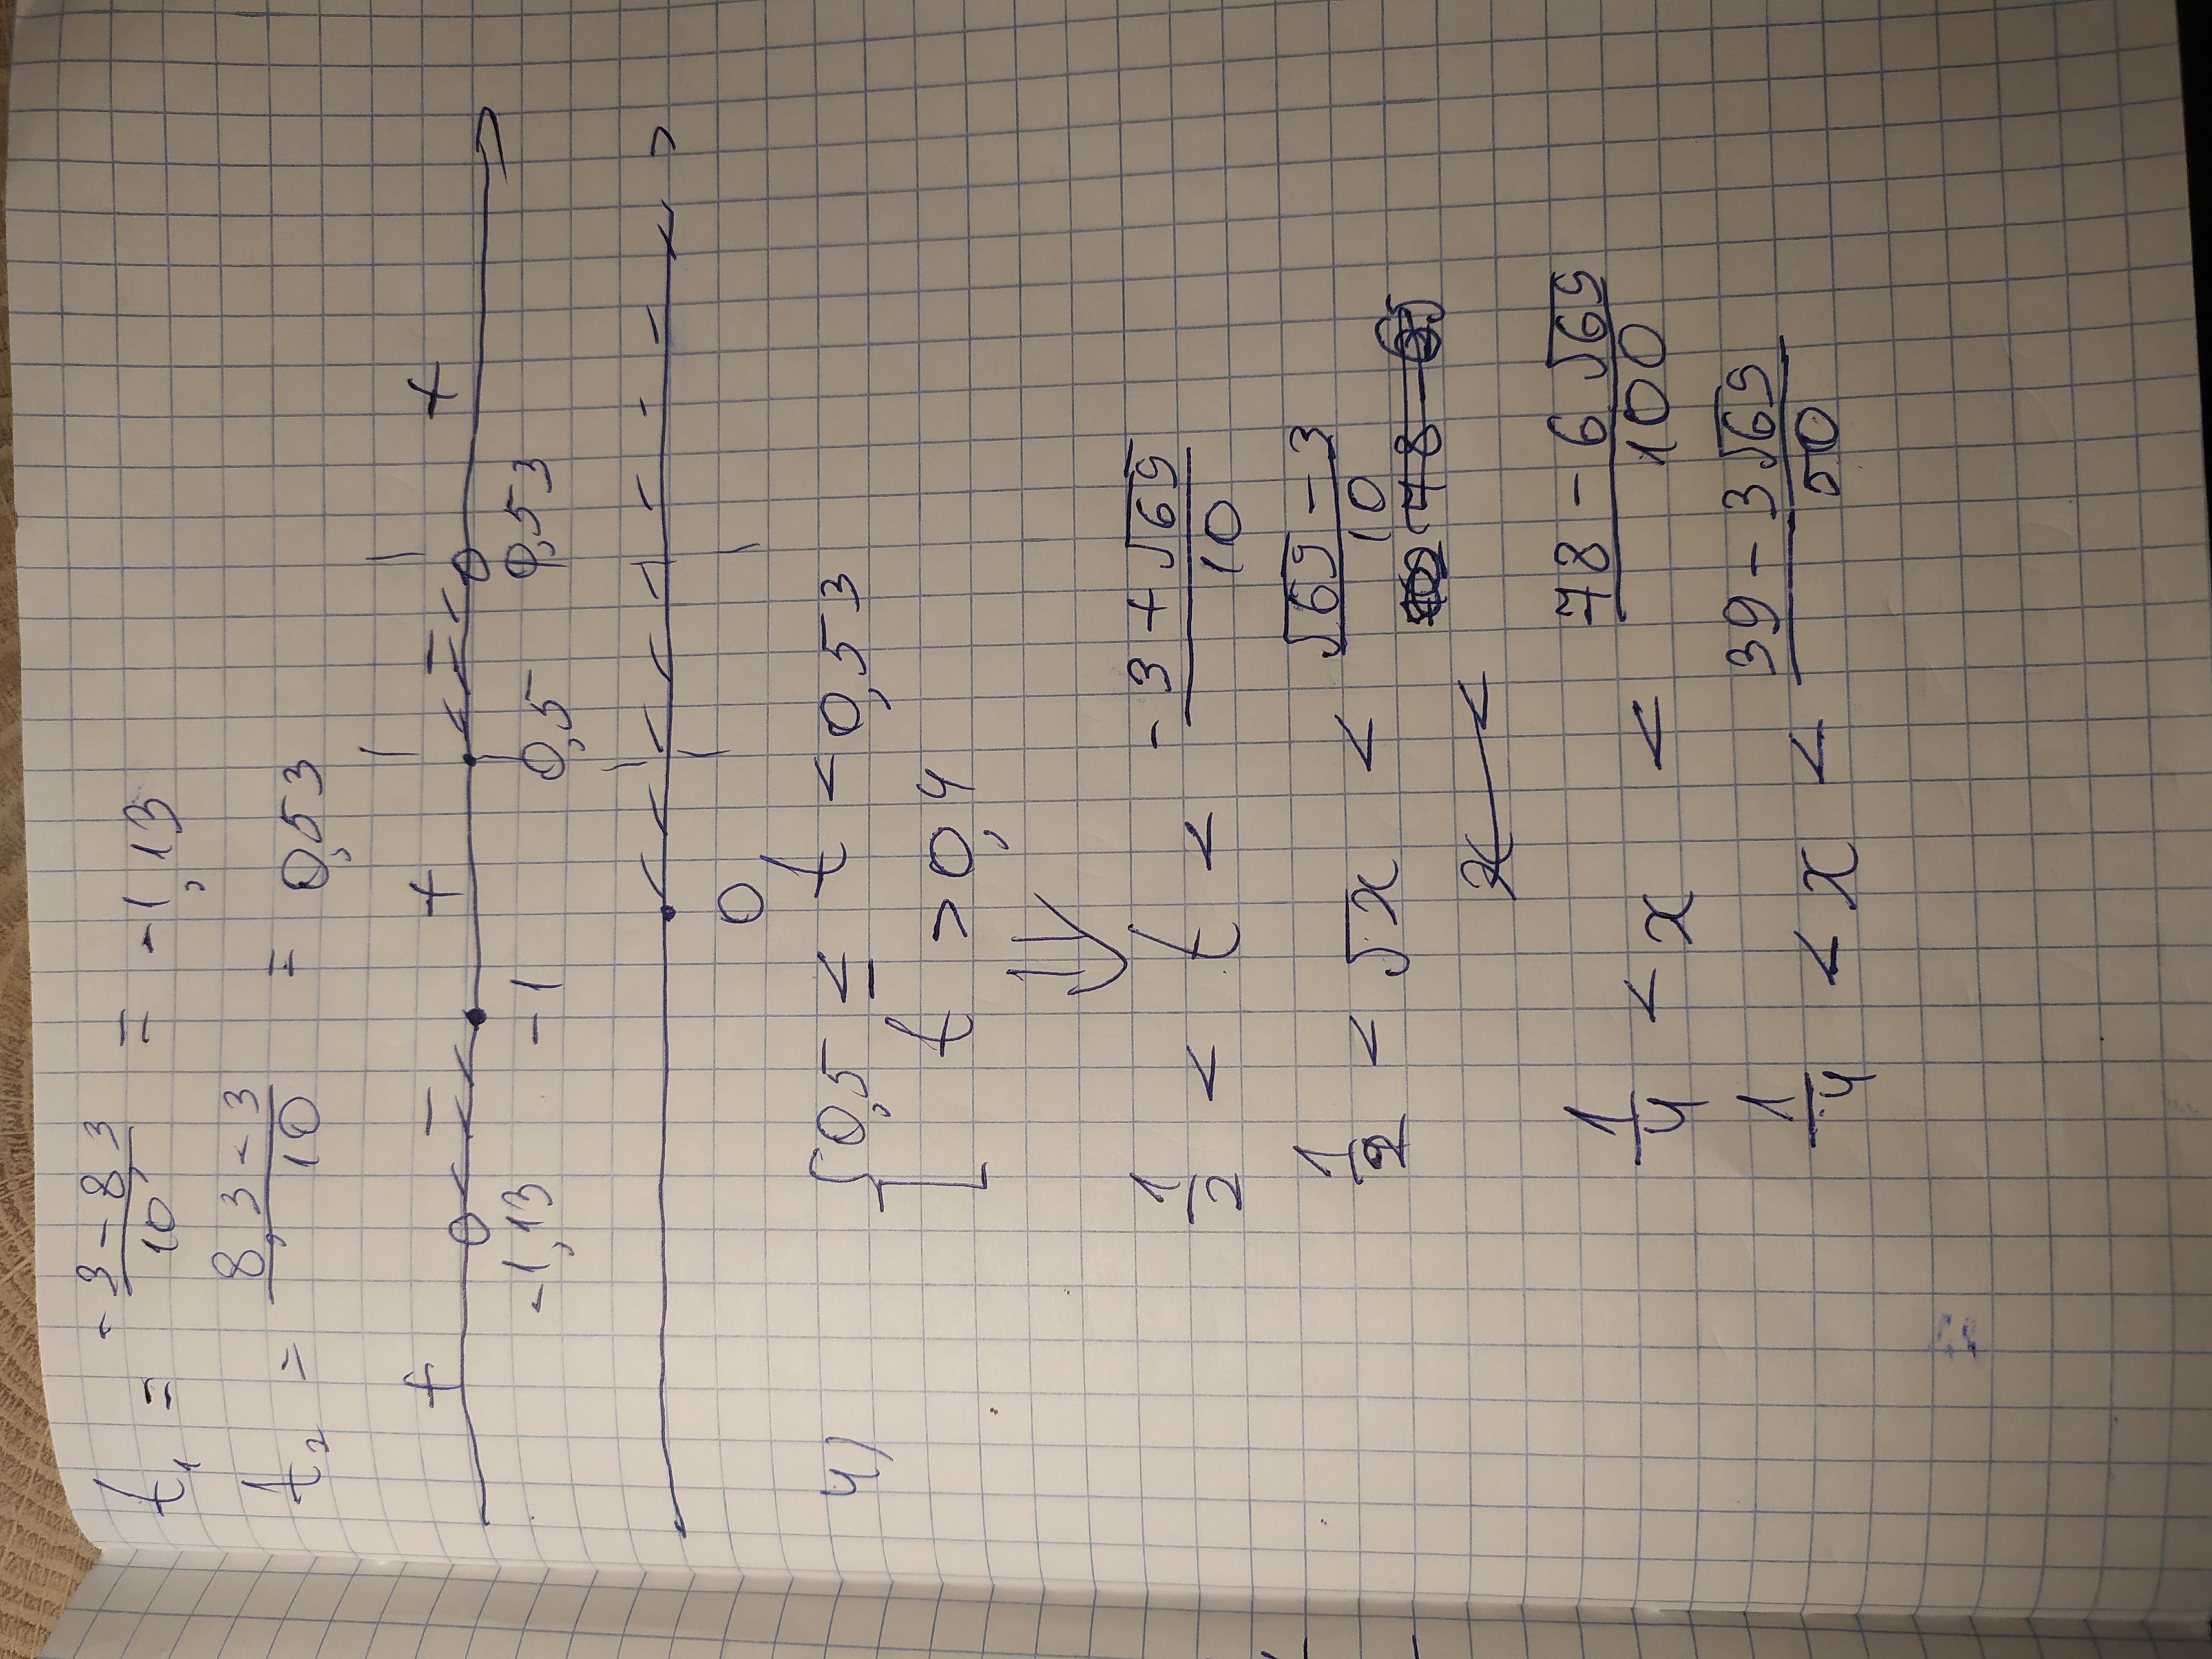 t₁ = -3-8,3/10 = -1,13
t₂ = 8,3-3/10 = 0,53
+ - + - +
-1,13 -1 0,5 0,53
0
4) {0,5 ≤ t < 0,53
t > 0,4
⇓
1/2 < t < -3+√69/10
1/2 < √x < √69-3/10
x < 78-
1/4 < x < 78-6√69/100
1/4 < x < 39-3√69/50